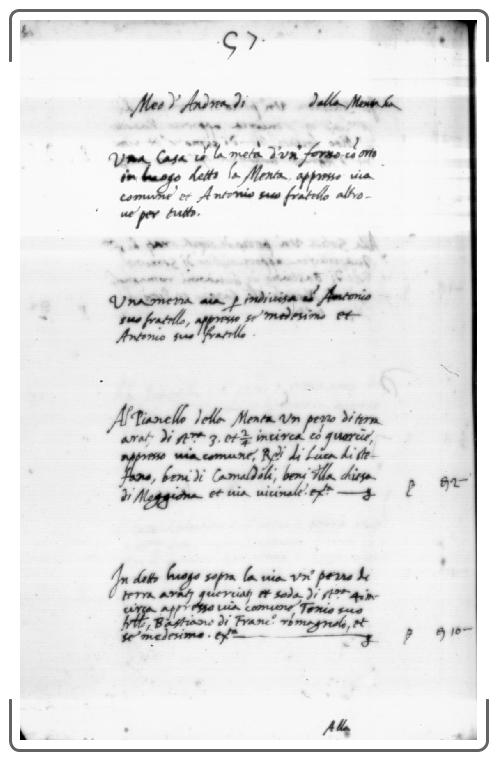 57
Meo d' Andrea di dalla Menta
Una Casa cõ la metà d'un' forno cõ orto
in luogo detto la Menta, appresso via
comune et Antonio suo fratello altro-
ve per tutto.
Una mezza aia p indivisa cõ Antonio
suo fratello, appresso se medesimo et
Antonio suo fratello.
Al Pianello della Menta un pezzo di terra
arat. di st.re 3. et 2/4 incirca cõ quercie,
appresso via comune, Rdi di Luca di Ste-
fano, beni di Camaldoli, beni della chiesa
di Moggiona et via vicinale. ex.ta
In detto luogo sopra la via un' pezzo di
terra arat. querciat. et soda di st.re 4. in-
circa appresso via comune, Tonio suo
frllo, Bastiano di Franc.o romagnolo, et
se medesimo. ex.ta
Alla